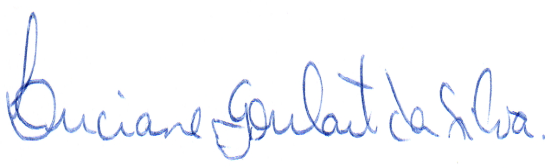 Luciane Goulart da Silva.